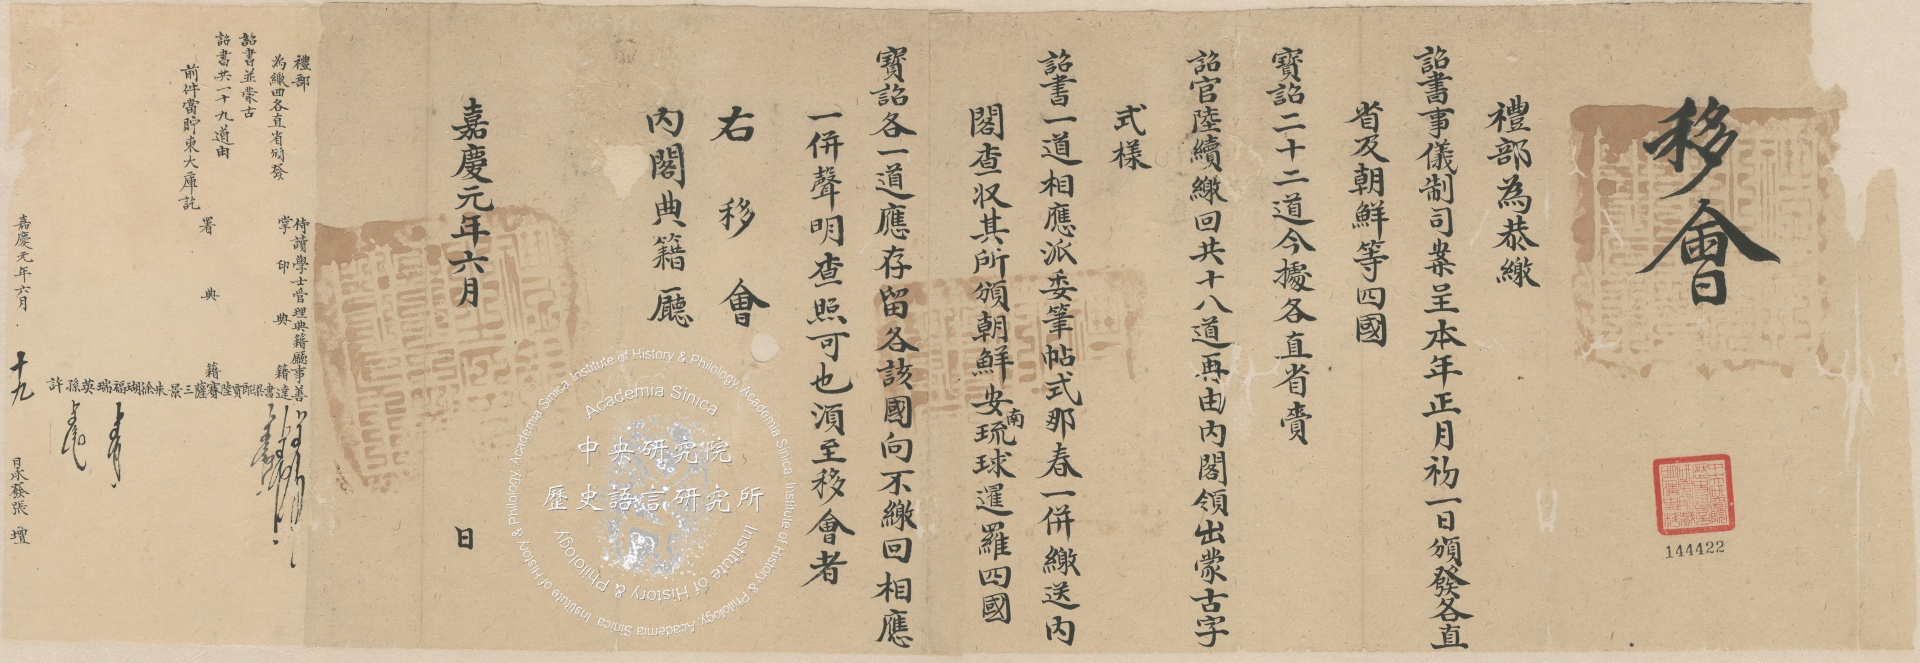 移會
禮部為恭繳
詔書事儀制司案呈本年正月初一日頒發各直
省及朝鮮等四國
寶詔二十二道今據各直省賫
詔官陸續繳回共十八道再由內閣領出蒙古字
式樣
詔書一道相應派委筆帖式那春一併繳送內
閣查収其所頒朝鮮安南琉球暹羅四國
寶詔各一道應存留各該國向不繳回相應
一併聲明查照可也湏至移會者
右移會
內閣典籍廳
嘉慶元年六月 日
禮部
為繳回各直省頒發
詔書並蒙古
詔書共一十九道由
前件當貯東大庫訖
侍讀學士管理典籍廳事善
掌印典籍達
署典籍
嘉慶元年六月 十九
日承發張壇
144422
中央研究院
歷史語言研究所
Academia Sinica
Institute of History & Philology
Institute of History & Philology, Academia Sinica